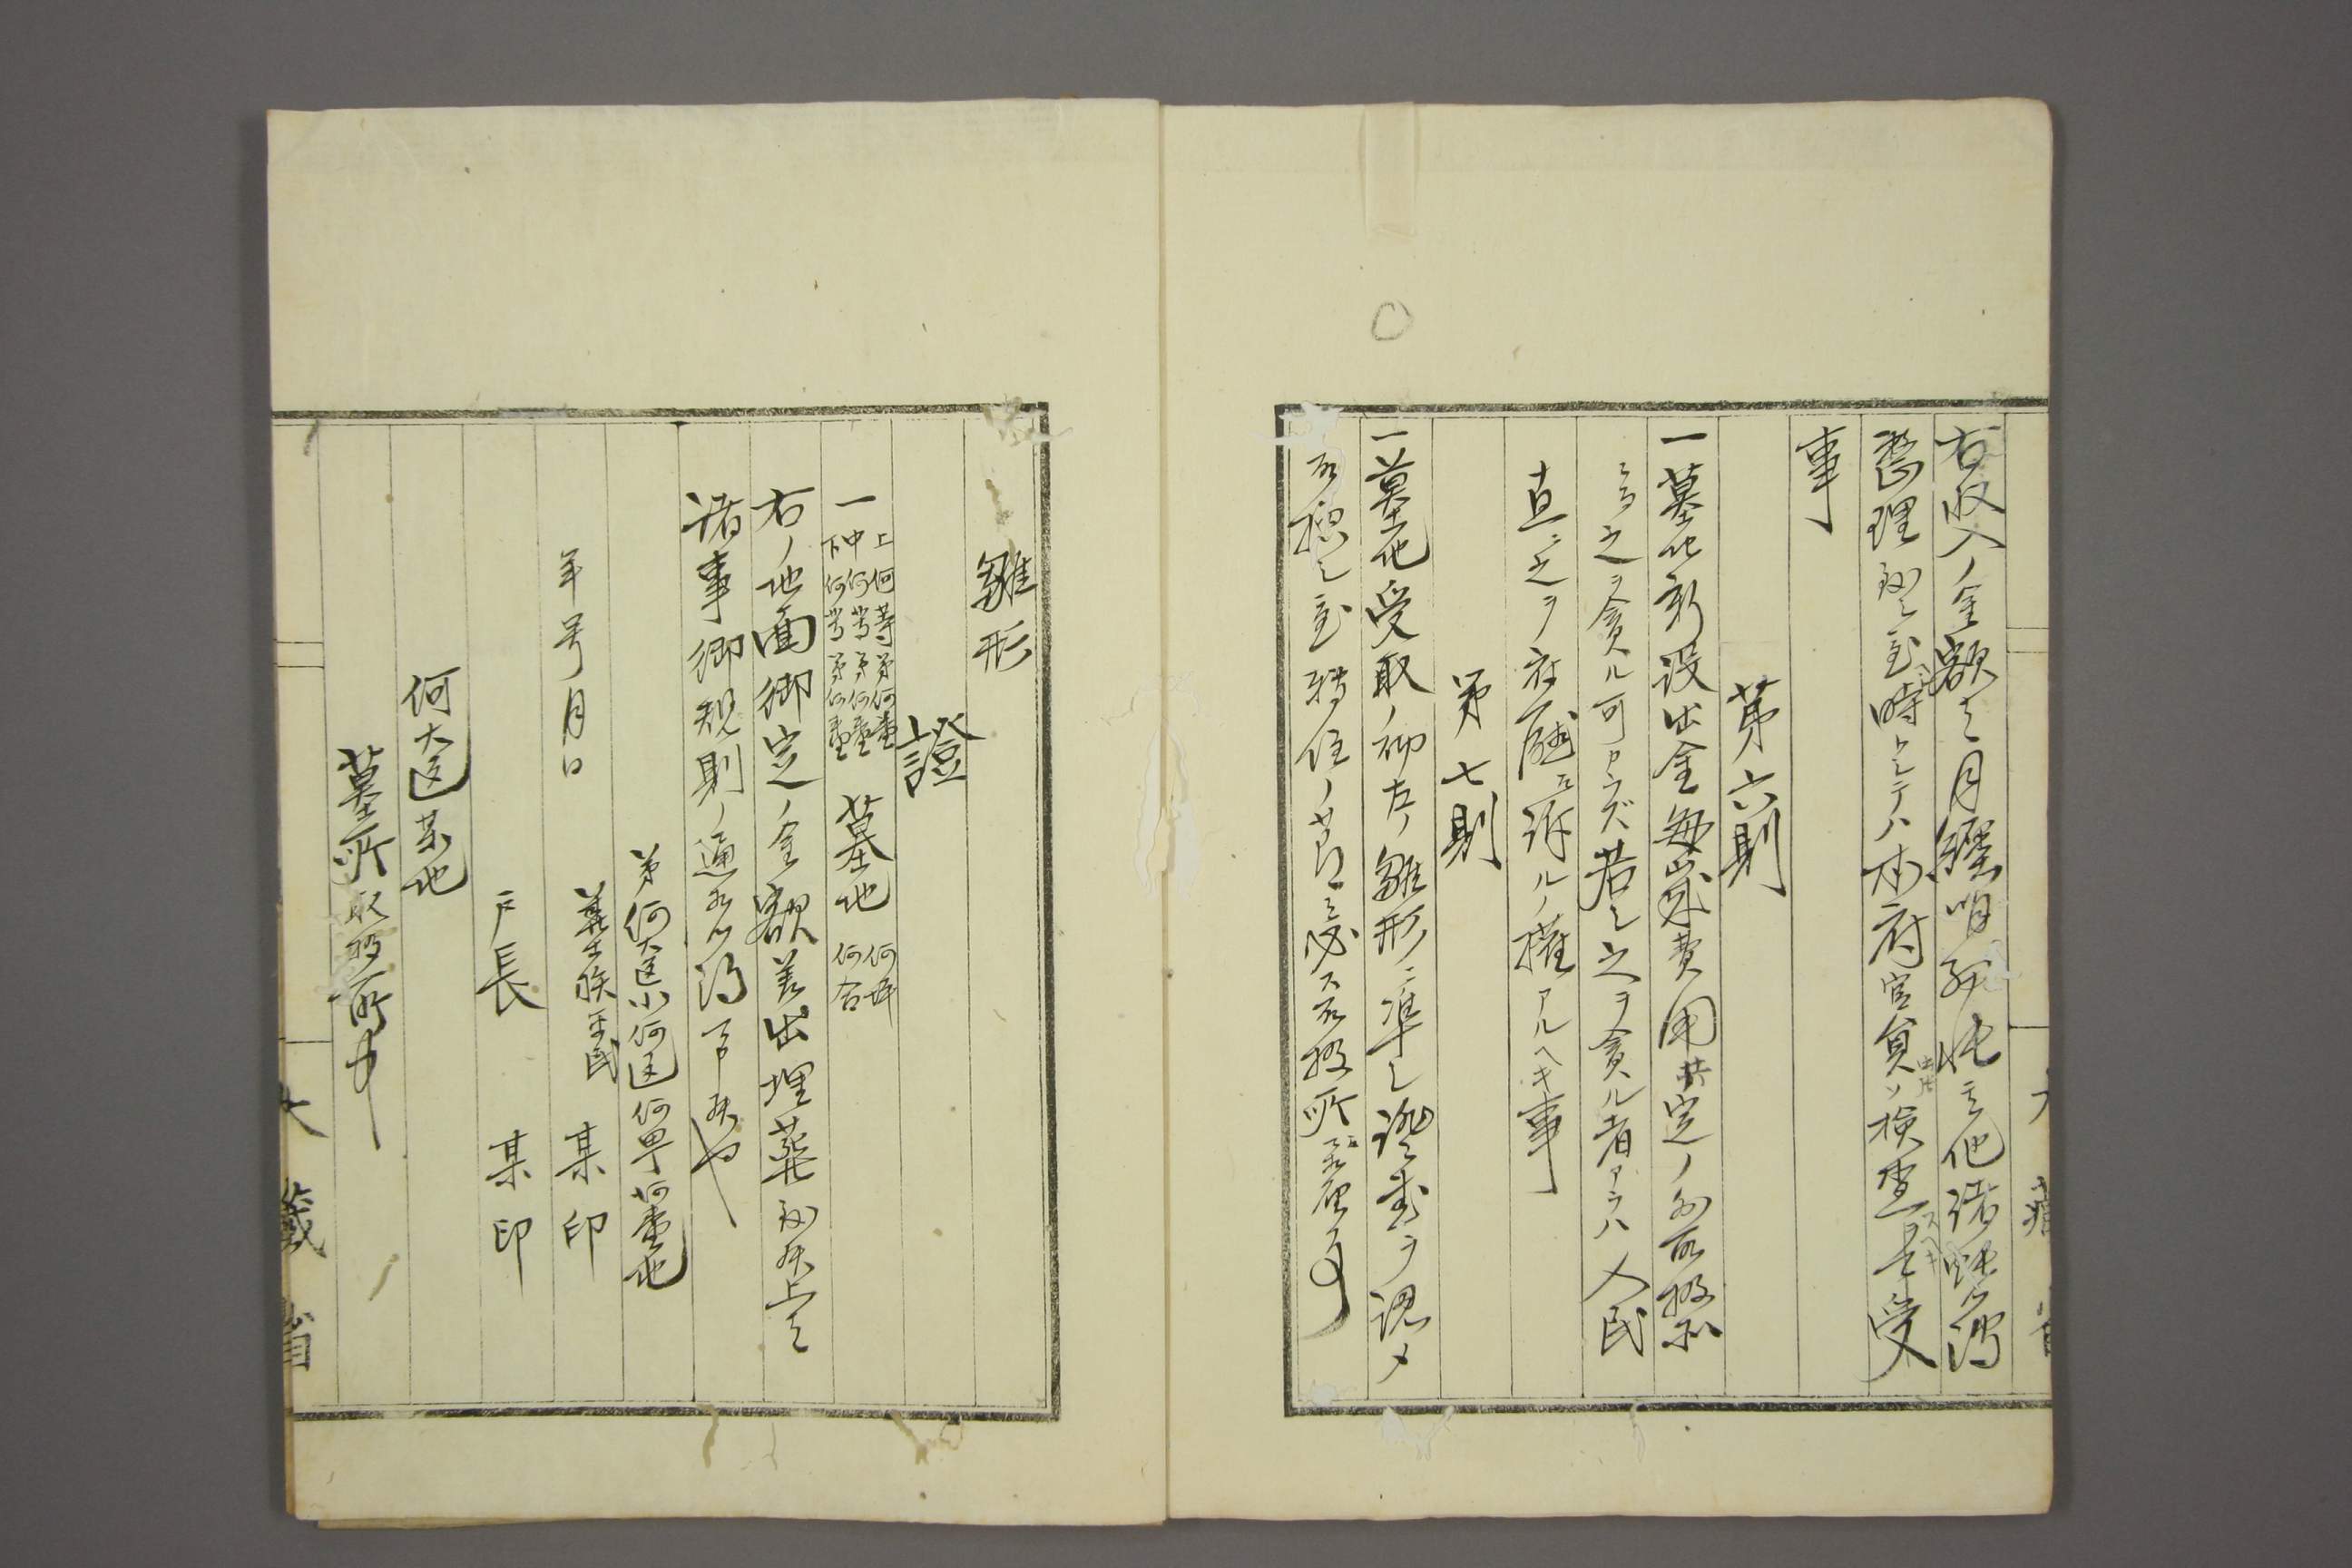 右収入ノ金額ハ月縲明細帳其他諸帳簿
整理致シ置時トシテハ本府官員ノ検査ヲ受
事
第六則
一墓地新設出金毎歳費用共定ノ外取扱所
ニテ之ヲ貪ル可ラズ若シ之ヲ貪ル者アラハ人民
直ニ之ヲ府廳ニ訴ルノ権アルヘキ事
第七則
一墓地受取ノ節左ノ雛形ニ準シ證書ヲ認メ
差出シ置転住ノ節ニハ必ス取扱所ニ届事
雛形
證
一 上何等第何番
中何等第何番
下何等第何番
墓地 何坪
何合
右ノ地面御定ノ金額差出埋葬致候上ハ
諸事御規則ノ通相心得可申候也
第何大区小何区何町何番地
華士族平民 某印
年号月日
戸長 某印
何大区某地
墓所取扱所中
大蔵省